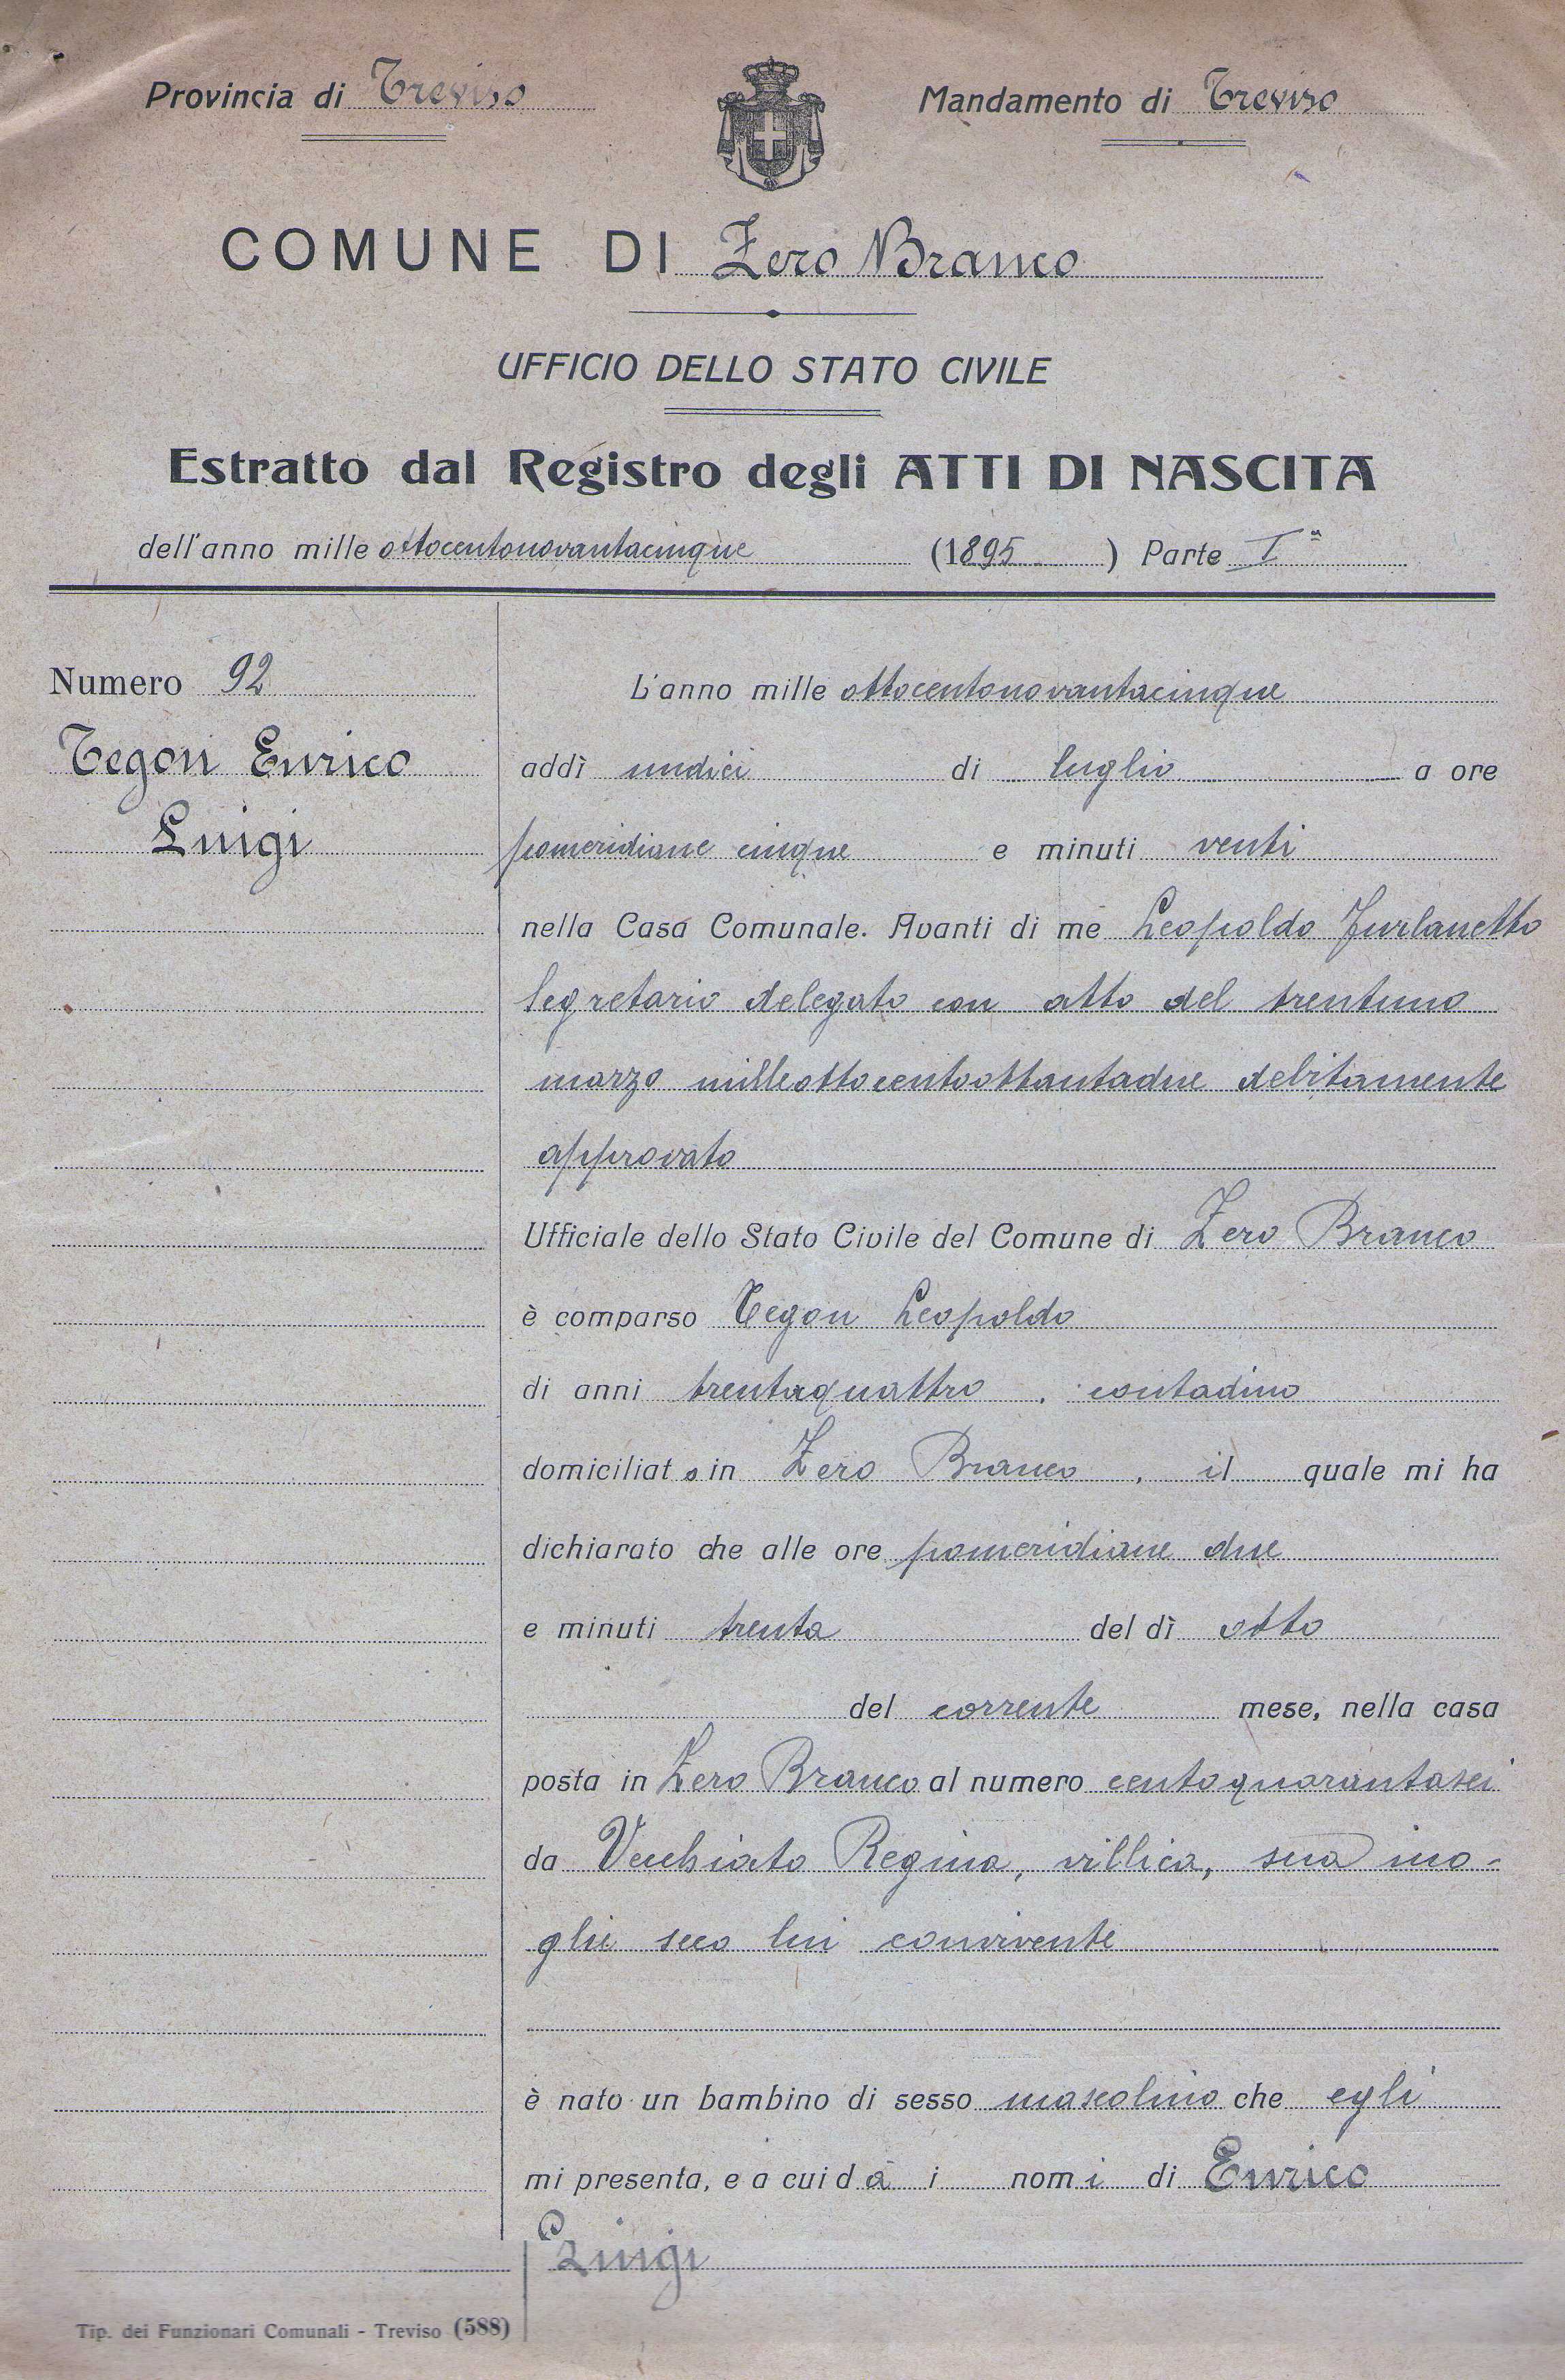 Provincia di Treviso
Mandamento di Treviso
COMUNE DI Zero Branco
UFFICIO DELLO STATO CIVILE
Estratto dal Registro degli ATTI DI NASCITA
dell'anno mille ottocentonovantacinque (1895) Parte Iª
Numero 92
Tegon Enrico
Luigi
L'anno mille ottocentonovantacinque
addì undici di luglio a ore
pomeridiane cinque e minuti venti
nella Casa Comunale. Avanti di me Leopoldo Furlanetto
Segretario delegato con atto del trentuno
marzo milleottocentoottantadue debitamente
approvato
Ufficiale dello Stato Civile del Comune di Zero Branco
è comparso Tegon Leopoldo
di anni trentaquattro, contadino
domiciliato in Zero Branco, il quale mi ha
dichiarato che alle ore pomeridiane due
e minuti trenta del dì otto
del corrente mese, nella casa
posta in Zero Branco al numero centoquarantasei
da Vecchiato Regina, villica, sua mo-
glie seco lui convivente
è nato un bambino di sesso mascolino che egli
mi presenta, e a cui dà i nomi di Enrico
Luigi
Tip. dei Funzionari Comunali - Treviso (588)